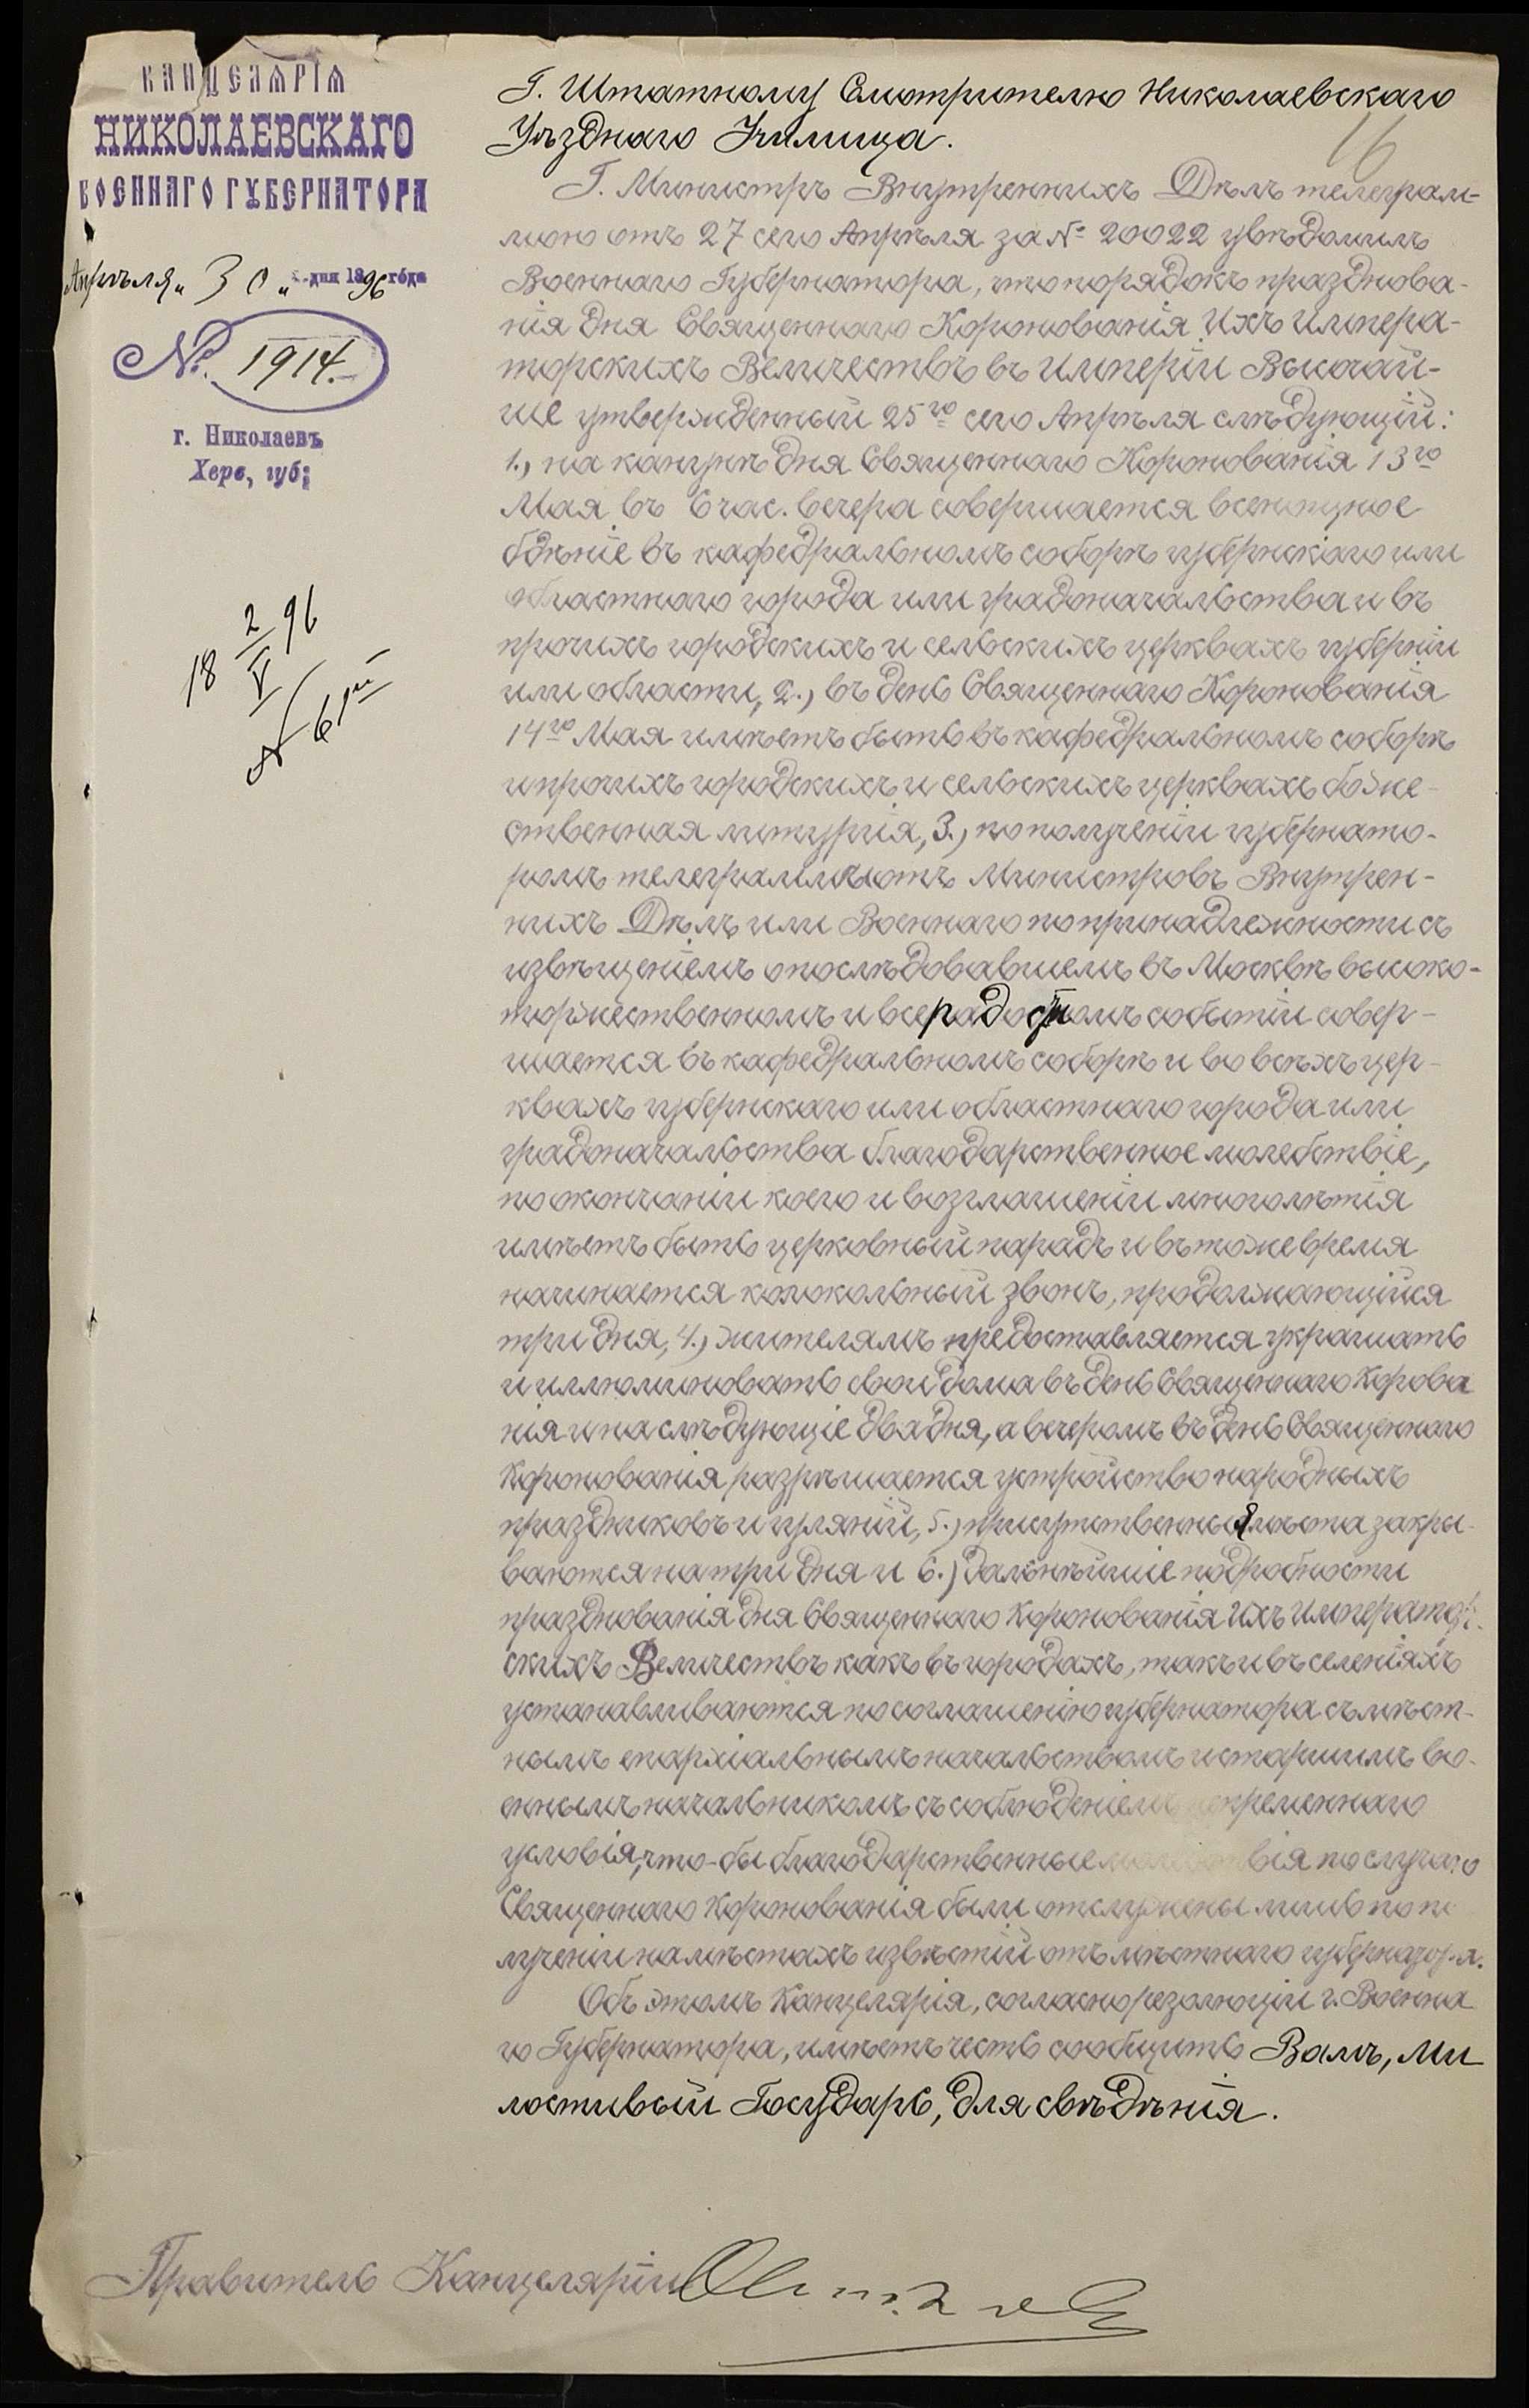 КАНЦЕЛЯРІЯ
НИКОЛАЕВСКАГО
ВОЕННАГО ГУБЕРНАТОРА
Апрѣля „30„ дня 1896 года
№ 1914.
г. Николаевъ
Херс, губ;
2/V 18 96
№ 61
16
Г. Штатному Смотрителю Николаевскаго
Уѣзднаго Училища.
Г. Министръ Внутреннихъ Дѣлъ телеграм-
мою отъ 27 сего Апрѣля за № 20022 увѣдомилъ
Военнаго Губернатора, что порядокъ празднова-
нія дня Священнаго Коронованія Ихъ Импера-
торскихъ Величествъ въ Имперіи Высочай-
ше утвержденный 25го сего Апрѣля слѣдующій:
1., на канунѣ дня Священнаго Коронованія 13го
Мая въ 6 час. вечера совершается всенощное
бдѣніе въ кафедральномъ соборѣ губернскаго или
областнаго города или градоначальства и въ
прочихъ городскихъ и сельскихъ церквахъ губерніи
или области, 2., въ день Священнаго Коронованія
14го Мая имѣетъ быть въ кафедральномъ соборѣ
и прочихъ городскихъ и сельскихъ церквахъ боже-
ственная литургія, 3., по полученіи губернато-
ромъ телеграммы отъ Министровъ Внутрен-
нихъ Дѣлъ или Военнаго по принадлежности съ
извѣщеніемъ о послѣдовавшемъ въ Москвѣ высоко-
торжественномъ и всерадостномъ событіи совер-
шается въ кафедральномъ соборѣ и во всѣхъ цер-
квахъ губернскаго или областнаго города или
градоначальства благодарственное молебствіе,
по окончаніи коего и возглашеніи многолѣтія
имѣетъ быть церковный парадъ и въ тоже время
начинается колокольный звонъ, продолжающійся
три дня, 4., жителямъ предоставляется украшать
и иллюминовать свои дома въ день Священнаго Корова
нія и на слѣдующіе два дня, а вечеромъ въ день Священнаго
Коронованія разрѣшается устройство народныхъ
праздниковъ и гуляній, 5.) присутственныя мѣста закры-
ваются на три дня и 6.) дальнѣйшіе подробности
празднованія дня Священнаго Коронованія Ихъ Император-
скихъ Величествъ какъ въ городахъ, такъ и въ селеніяхъ
устанавливаются по соглашенію губернатора съ мѣст-
нымъ епархіальнымъ начальствомъ и старшимъ во-
еннымъ начальникомъ съ соблюденіемъ непременнаго
условія, что-бы благодарственные молебствія по случаю
Священнаго Коронованія были отслужены лишь по по
лученіи на мѣстахъ извѣстій отъ мѣстнаго губернатора.
Объ этомъ Канцелярія, согласно резолюціи г. Военна
го Губернатора, имѣетъ честь сообщить Вамъ, Ми
лостивый Государь, для свѣдѣнія.
Правитель Канцеляріи